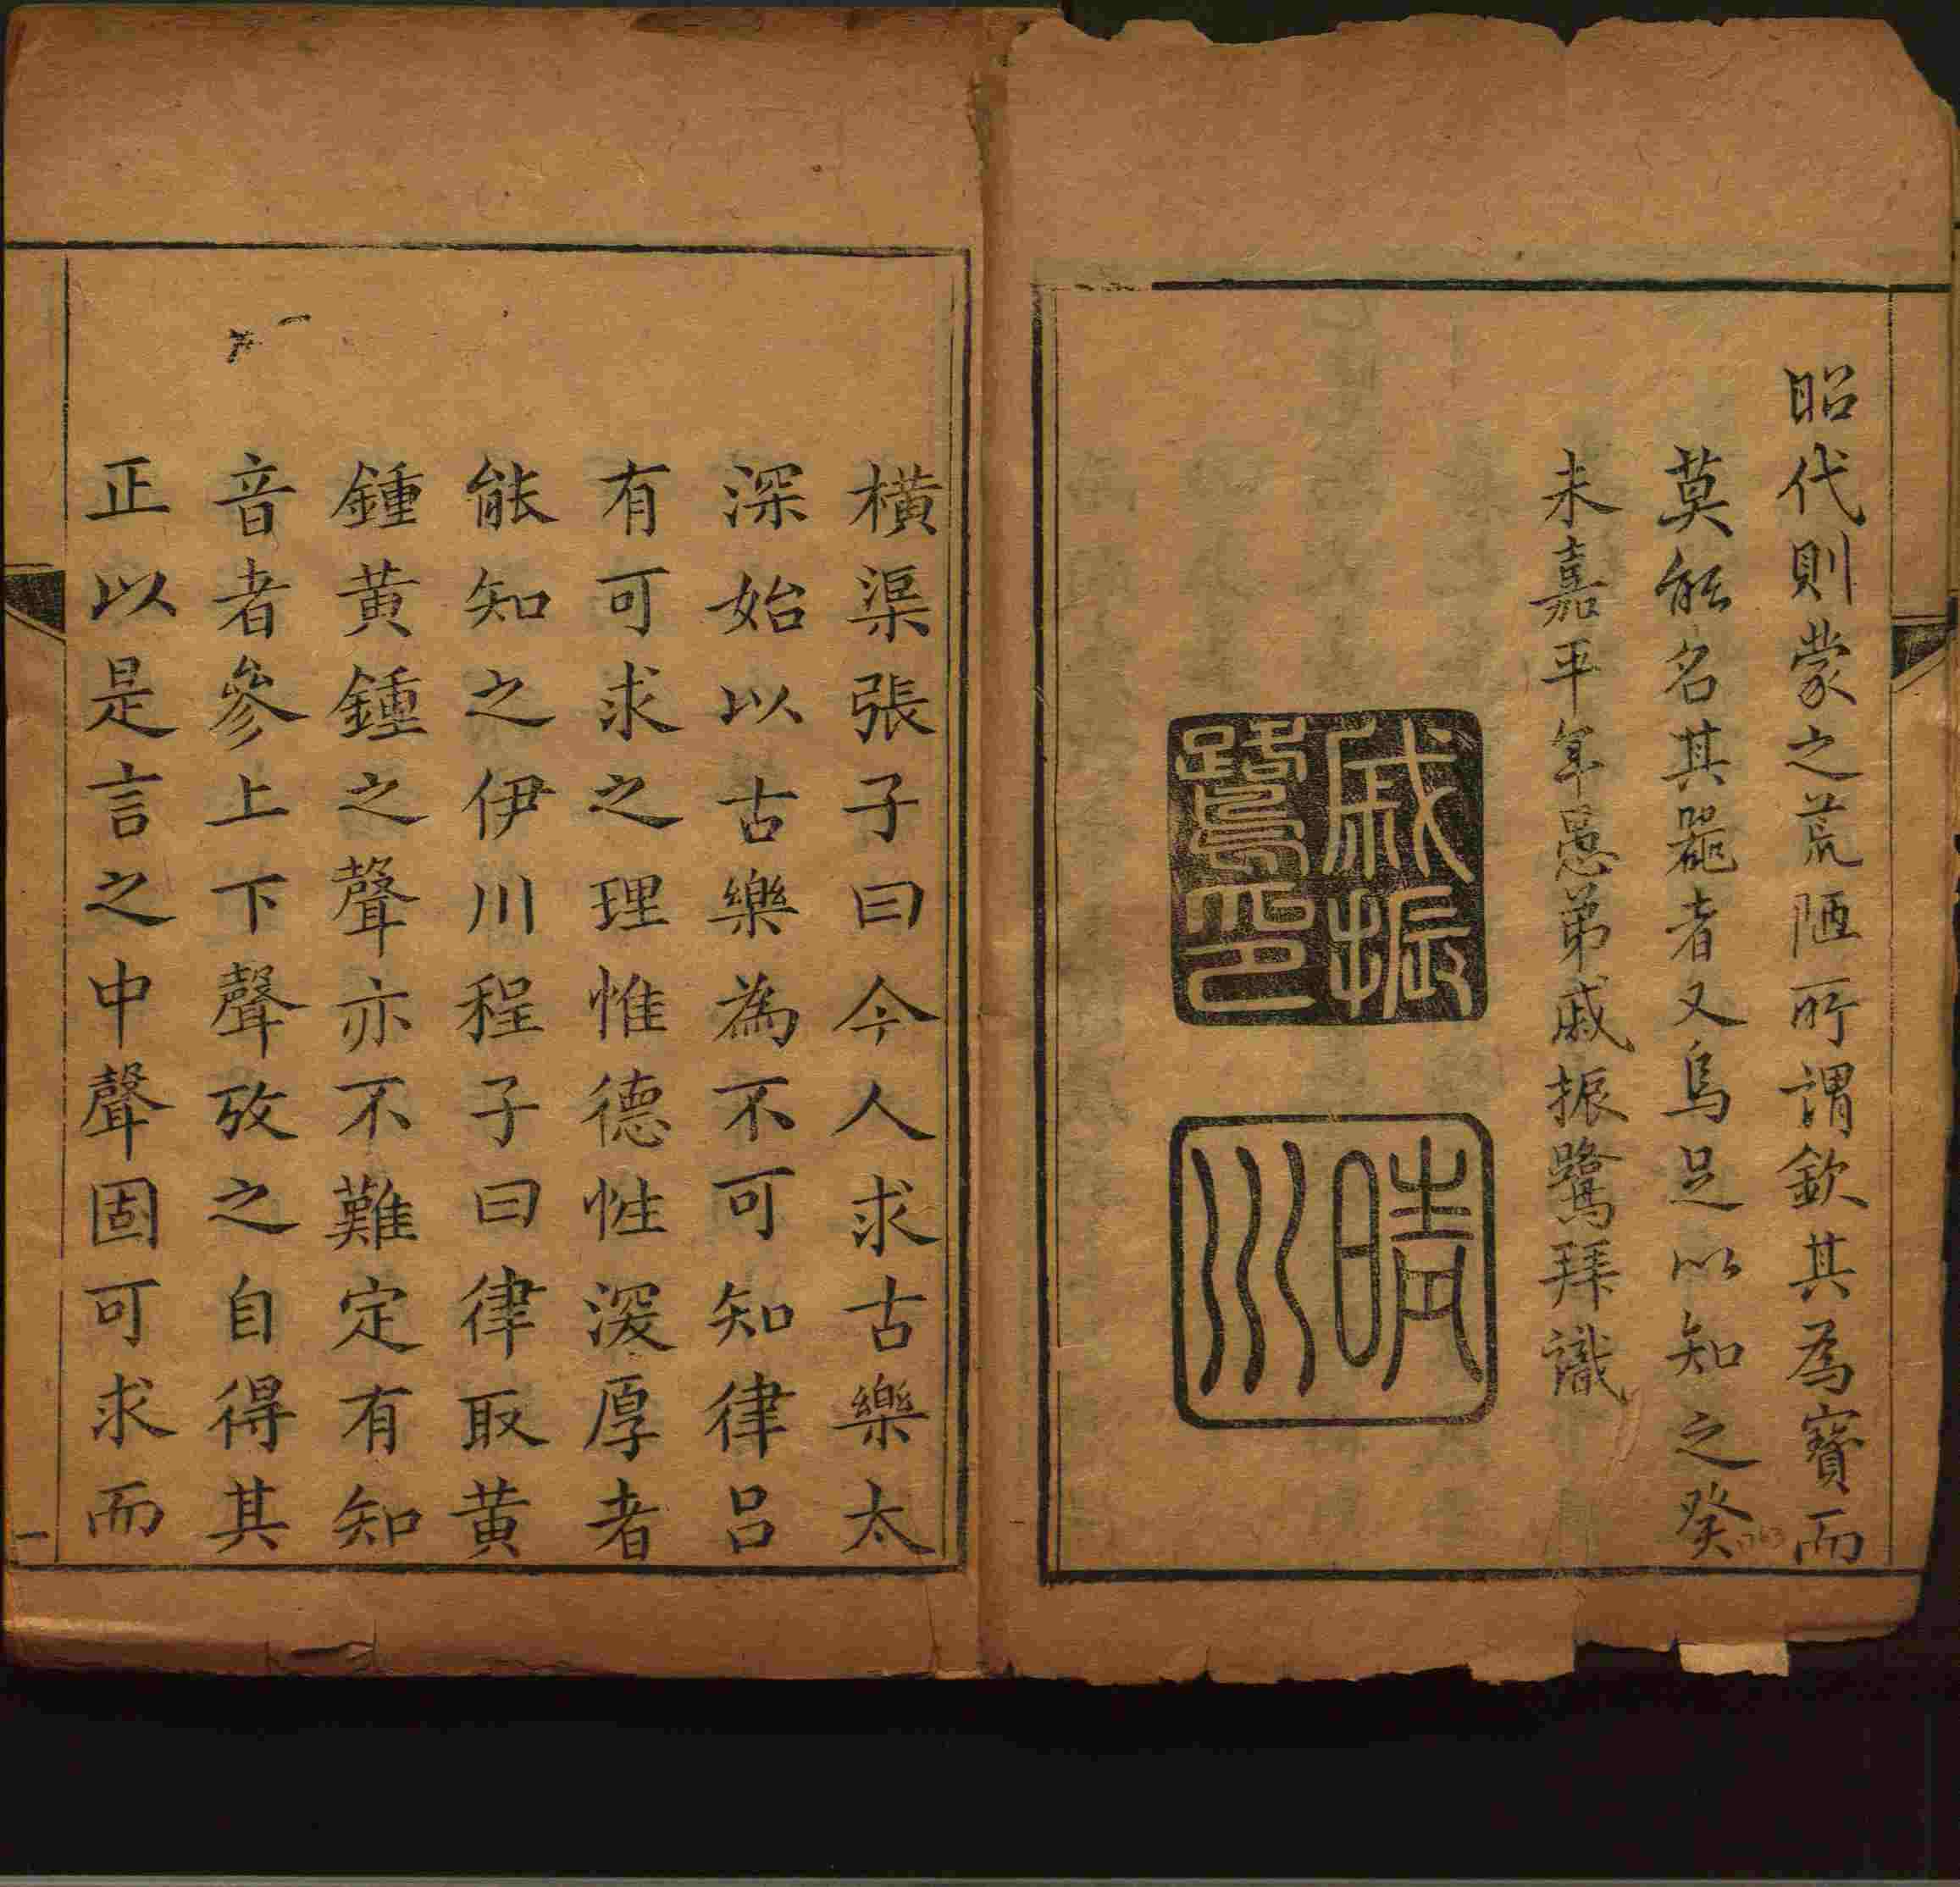 昭代則蒙之荒陋所謂欽其為寶而
莫能名其器者又烏足以知之癸
未嘉平年愚弟戚振鷺拜識
戚振
鷺印
晴
川
橫渠張子曰今人求古樂太
深始以古樂為不可知律呂
有可求之理惟德性深厚者
能知之伊川程子曰律取黃
鍾黃鍾之聲亦不難定有知
音者參上下聲攷之自得其
正以是言之中聲固可求而
一